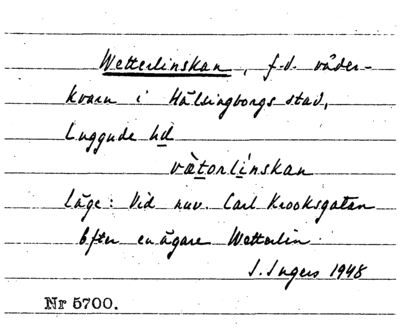 Wetterlinskan, f.d. väder-
kvarn i Hälsingborgs stad,
Luggude hd
vätorlinskan
Läge: Vid nuv. Carl Krooksgatan
Efter en ägare Wetterlin.
I. Ingers 1948
Nr 5700.